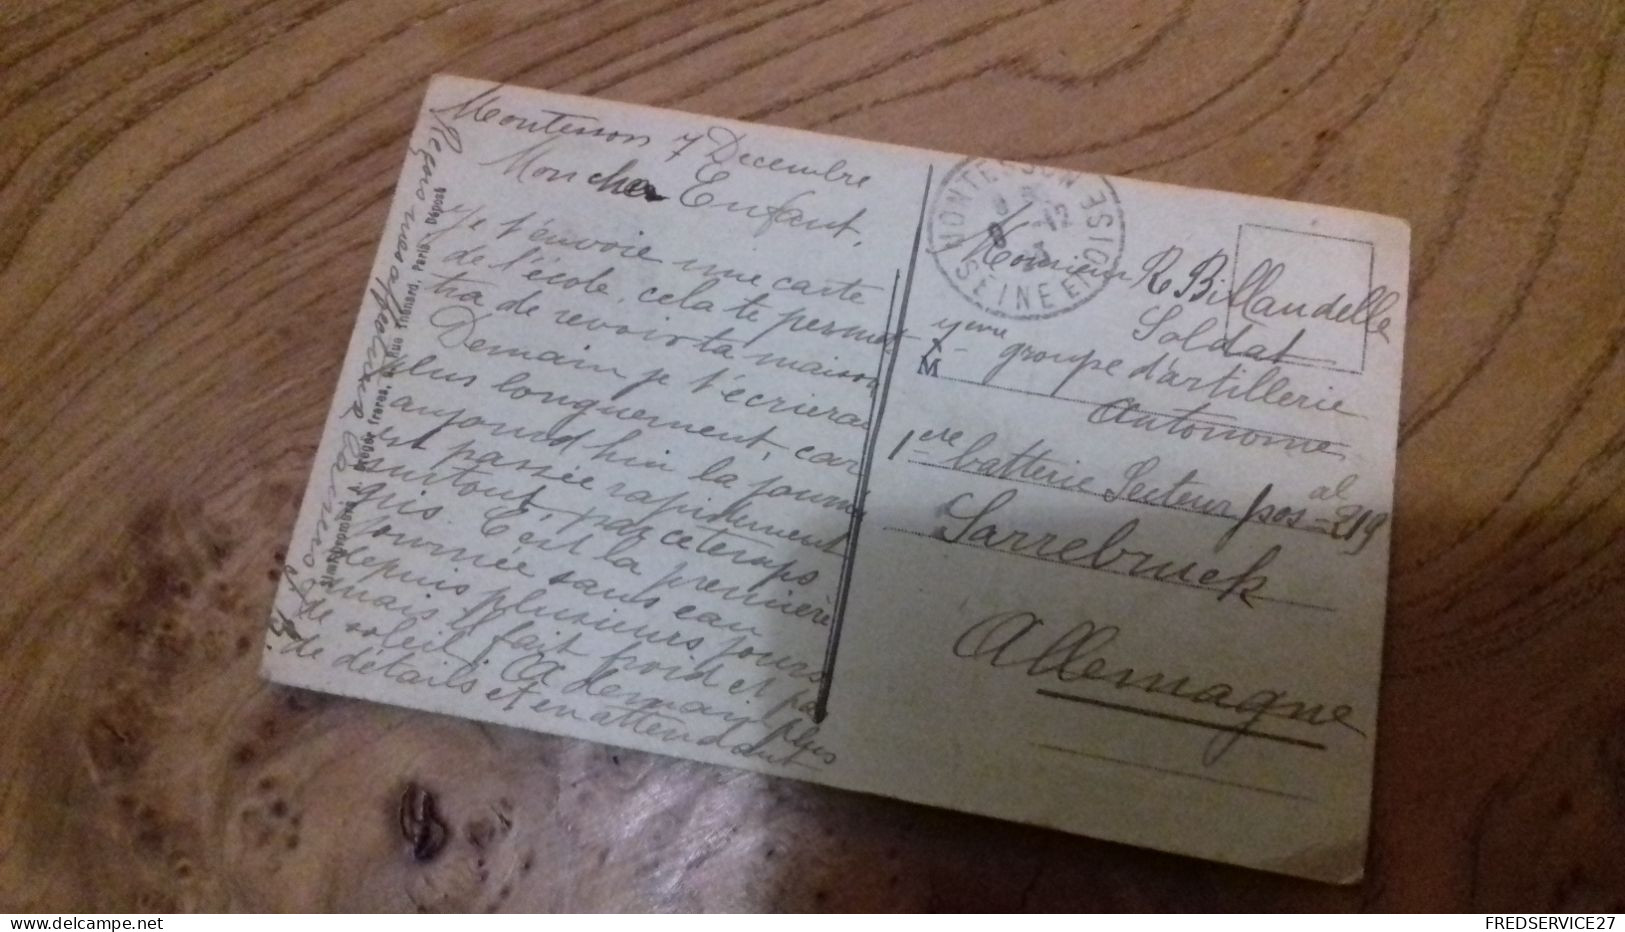 Montesson 7 Decembre
Mon cher Enfant,
Je t'envoie une carte
de l'école, cela te permet-
tra de revoir ta maison
Demain je t'écrierai
plus longuement, car
aujourd'hui la journée
est passée rapidement
surtout, par ce temps
gris. C'est la première
journée sans eau
depuis plusieurs jours
mais il fait froid et pas
de soleil. A demain plus
de détails et en attendant
Reçois mes affectueux
J. Bréger frères, Rue Thénard, Paris Déposé
MONTESSON
SEINE ET OISE
Monsieur R Billaudelle
Soldat
M
groupe d'artillerie
Autonome
1ere batterie Secteur postal 219
Sarrebruck
Allemagne
FREDSERVICE27
www.delcampe.net